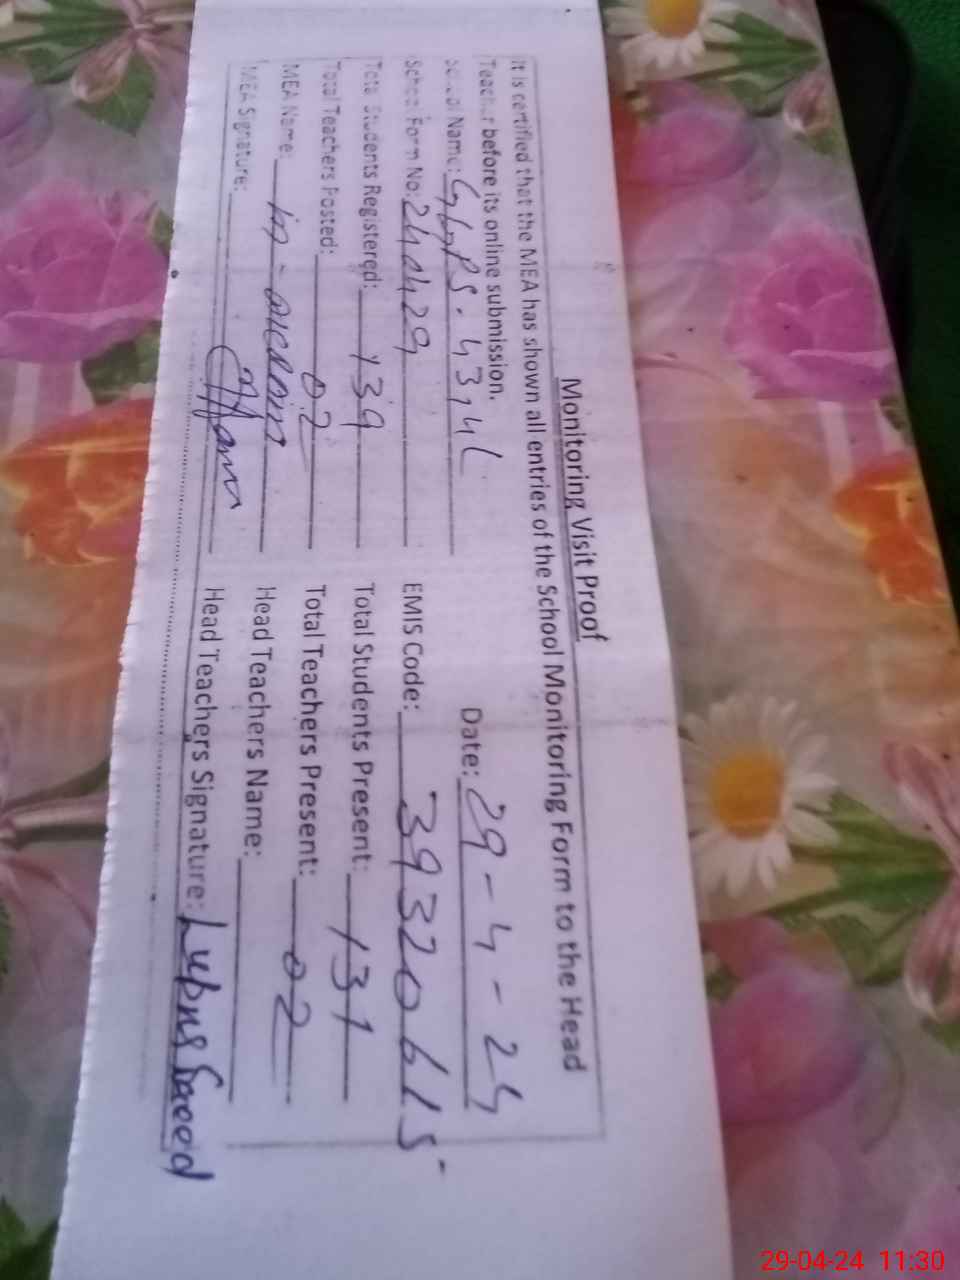 Monitoring Visit Proof
It is certified that the MEA has shown all entries of the School Monitoring Form to the Head
Teacher before its online submission.
Date: 29-4-24
School Name: GGPS. 43,4L
School Form No: 240429 EMIS Code: 39320615
Total Students Registered: 139 Total Students Present: 131
Total Teachers Posted: 02 Total Teachers Present: 02
MEA Name: Head Teachers Name:
MEA Signature: Head Teachers Signature: Lubna Saeed
29-04-24 11:30